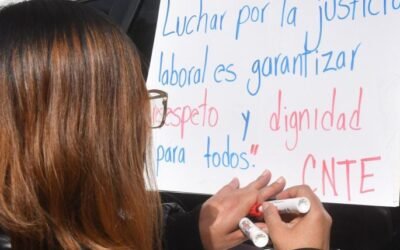 Luchar por la justicia
laboral es garantizar
respeto y dignidad
para todos."
CNTE